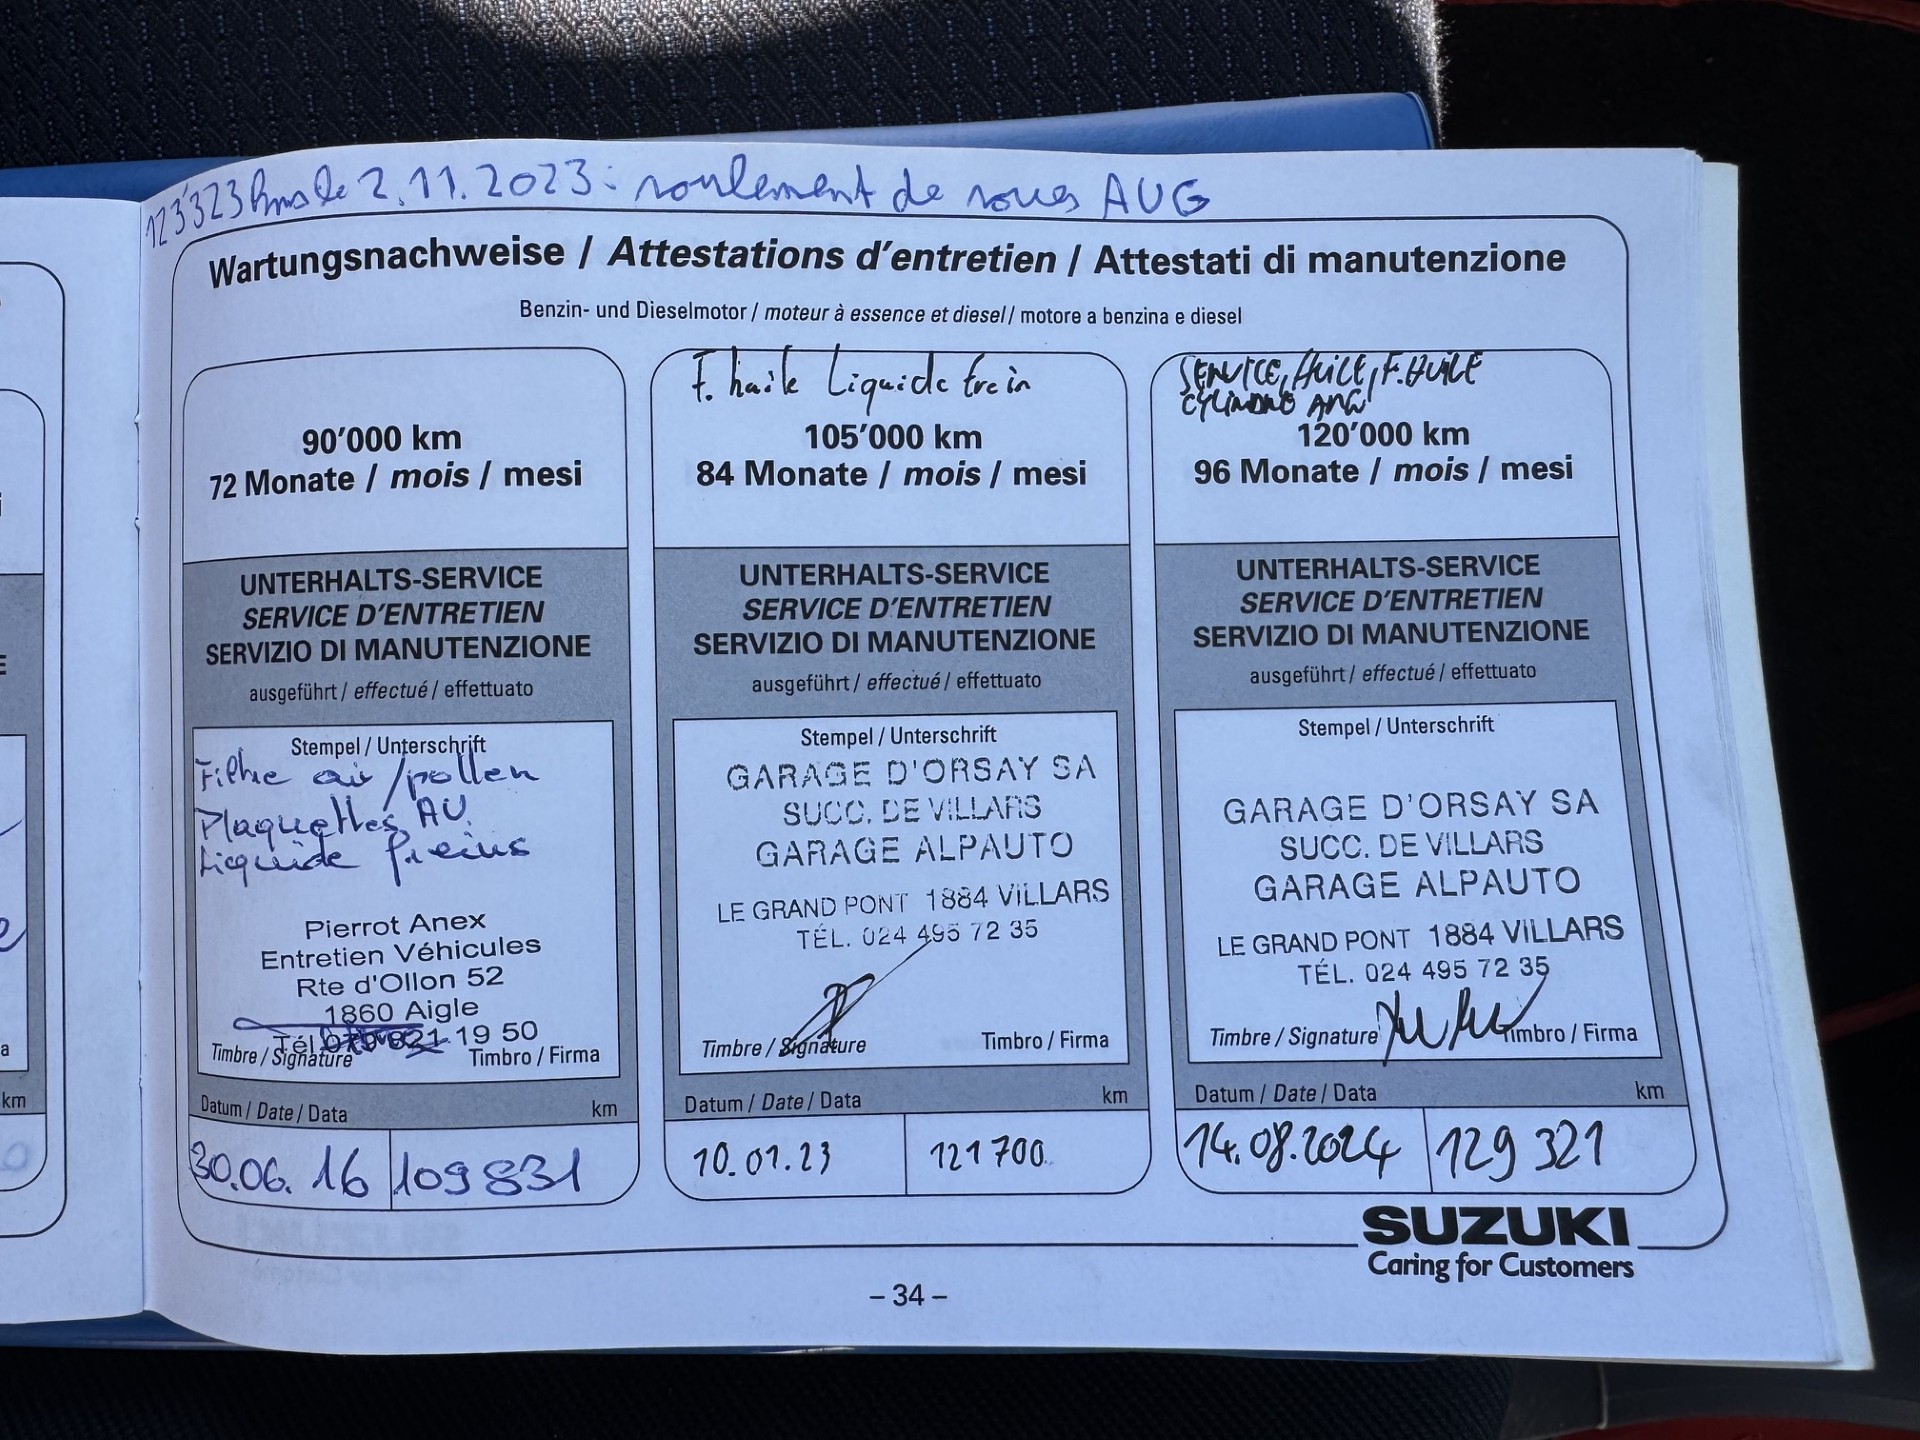 123'323 kms le 2.11.2023: roulement de roues AVG
Wartungsnachweise / Attestations d'entretien / Attestati di manutenzione
Benzin- und Dieselmotor / moteur à essence et diesel / motore a benzina e diesel
90'000 km
72 Monate / mois / mesi
UNTERHALTS-SERVICE
SERVICE D'ENTRETIEN
SERVIZIO DI MANUTENZIONE
ausgeführt / effectué / effettuato
Stempel / Unterschrift
Filtre air / pollen
Plaquettes AV.
Liquide freins
Pierrot Anex
Entretien Véhicules
Rte d'Ollon 52
1860 Aigle
Tél 079 821 19 50
Timbre / Signature Timbro / Firma
Datum / Date / Data km
30.06.16 109831
F. huile Liquide frein
105'000 km
84 Monate / mois / mesi
UNTERHALTS-SERVICE
SERVICE D'ENTRETIEN
SERVIZIO DI MANUTENZIONE
ausgeführt / effectué / effettuato
Stempel / Unterschrift
GARAGE D'ORSAY SA
SUCC. DE VILLARS
GARAGE ALPAUTO
LE GRAND PONT 1884 VILLARS
TÉL. 024 495 72 35
Timbre / Signature Timbro / Firma
Datum / Date / Data km
10.01.23 121700
SERVICE, HUILE, F. HUILE
CYLINDRE
120'000 km
96 Monate / mois / mesi
UNTERHALTS-SERVICE
SERVICE D'ENTRETIEN
SERVIZIO DI MANUTENZIONE
ausgeführt / effectué / effettuato
Stempel / Unterschrift
GARAGE D'ORSAY SA
SUCC. DE VILLARS
GARAGE ALPAUTO
LE GRAND PONT 1884 VILLARS
TÉL. 024 495 72 35
Timbre / Signature Timbro / Firma
Datum / Date / Data km
14.08.2024 129321
SUZUKI
Caring for Customers
– 34 –
km